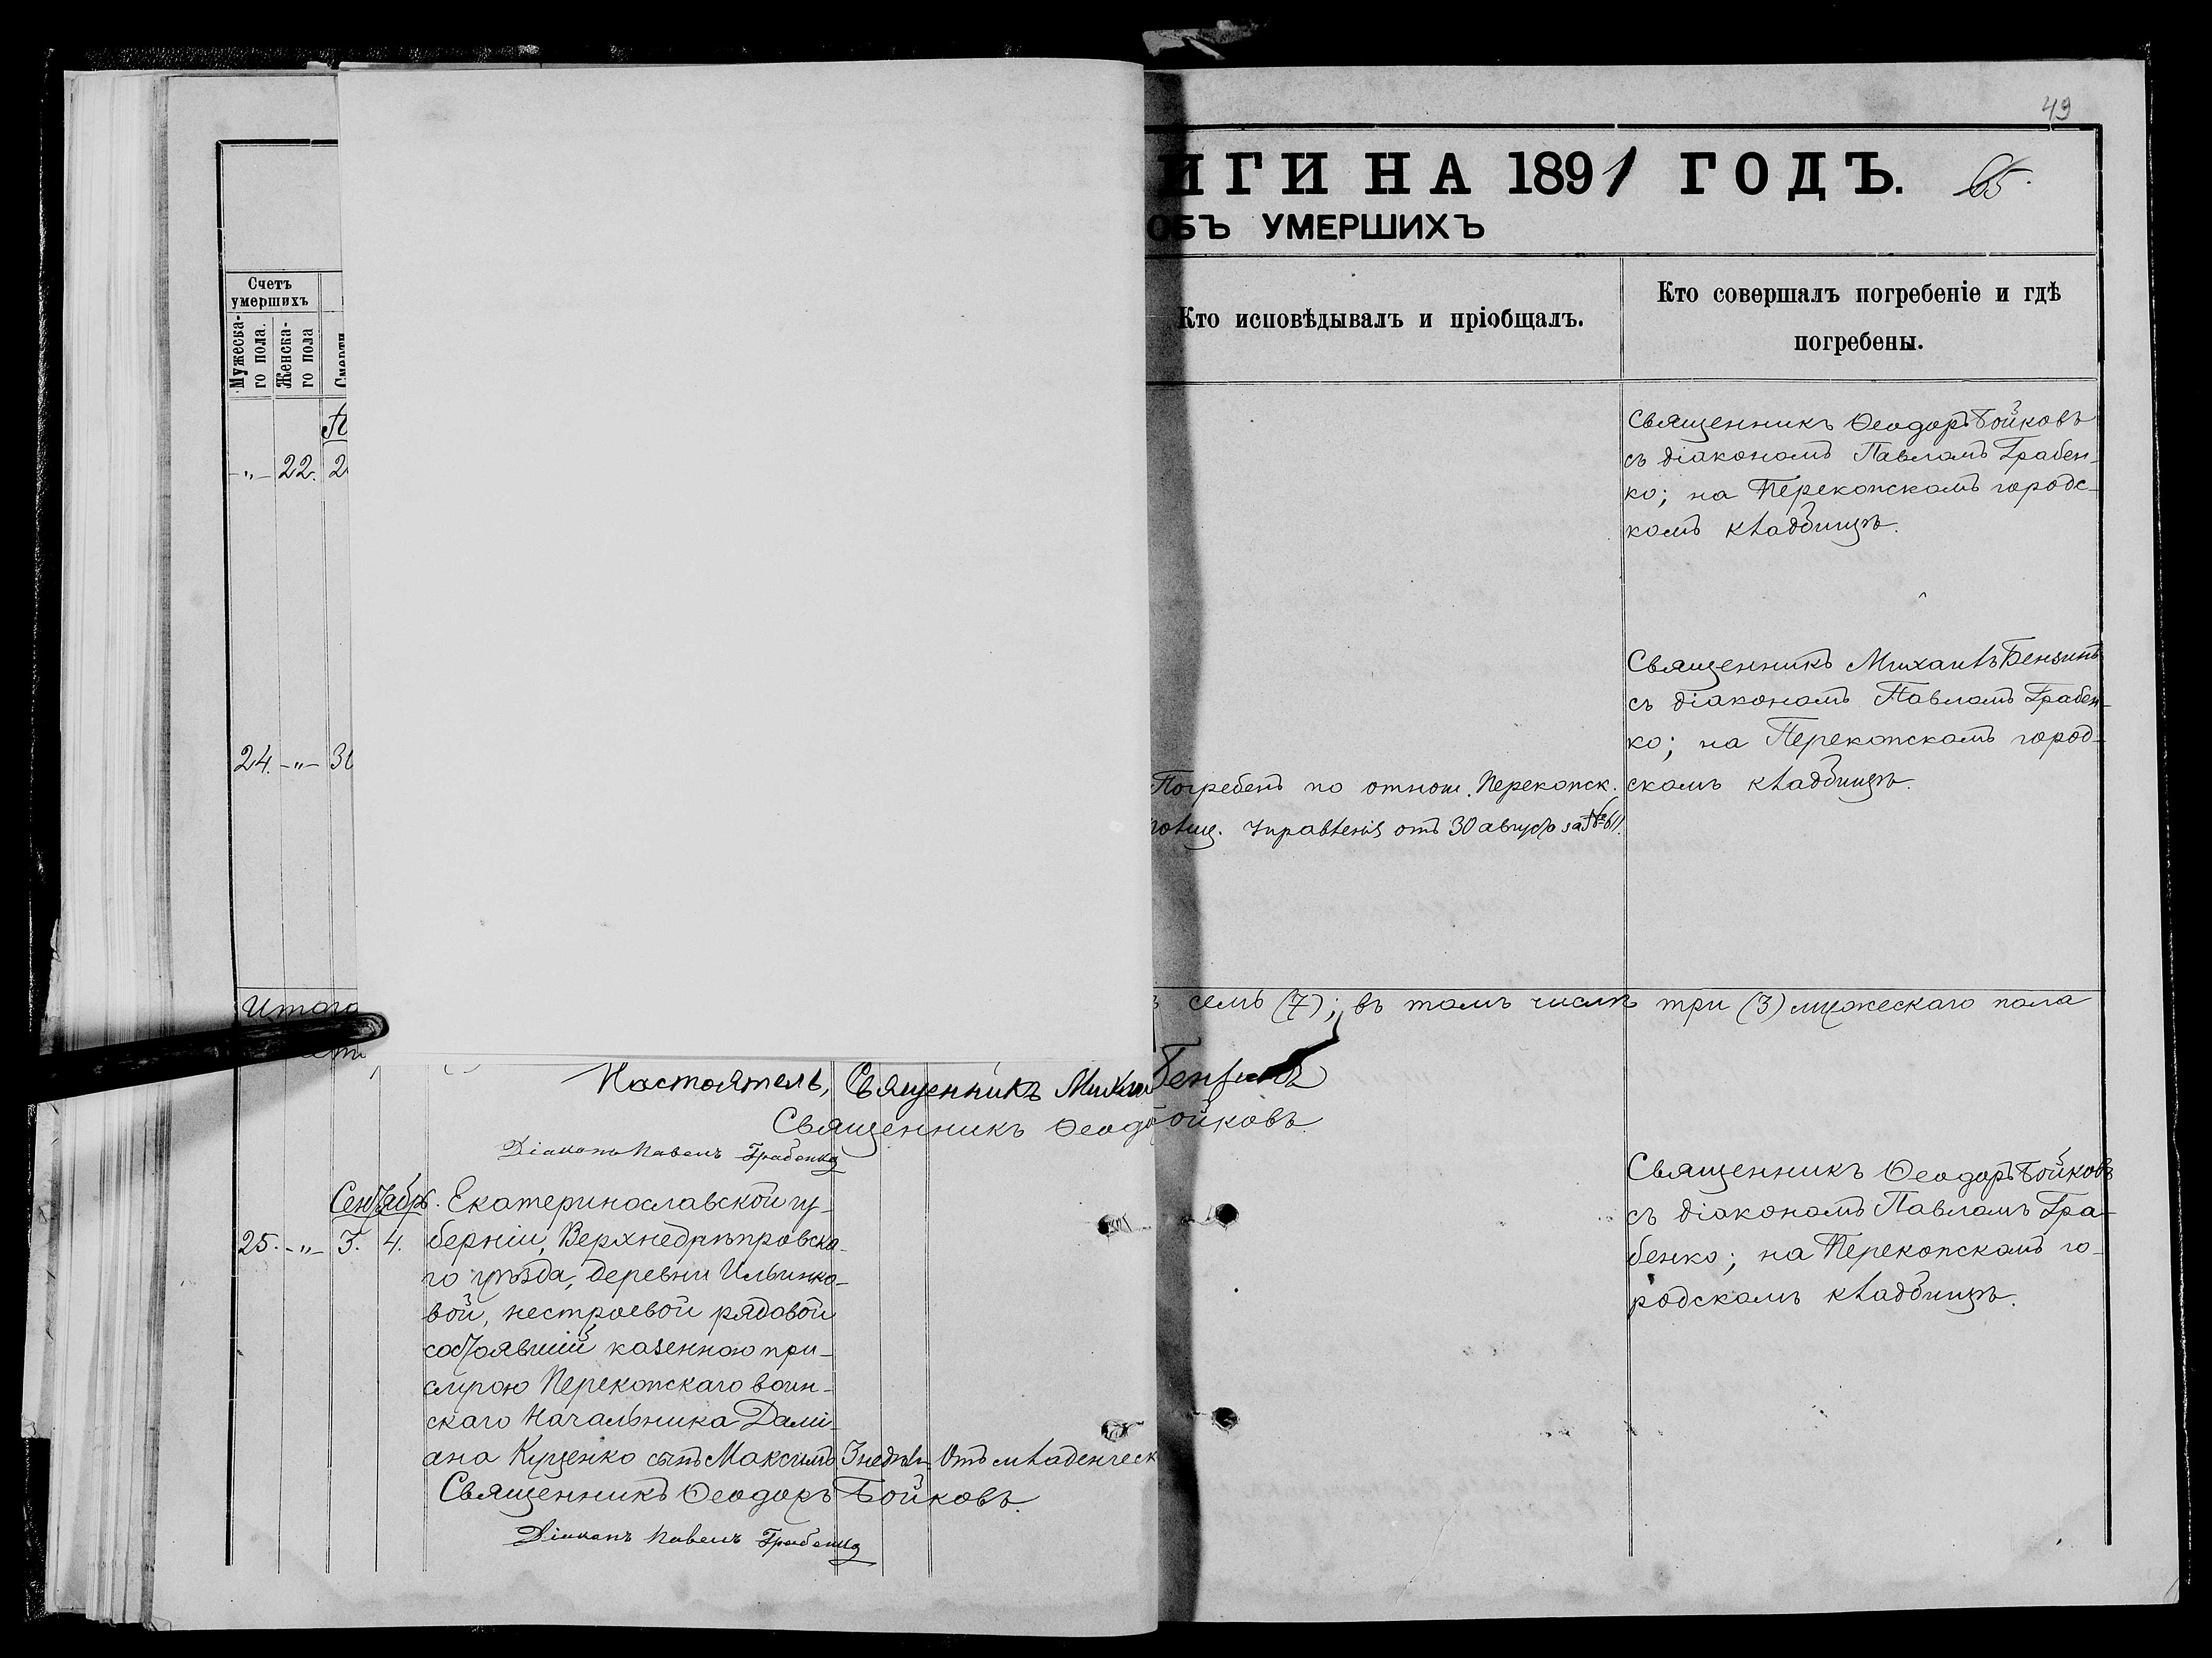 49
ИГИ НА 1891 ГОДЪ. 65.
ОБЪ УМЕРШИХЪ
Счетъ
умершихъ
Мужеска-
го пола.
Женска-
го пола
Смерти
Кто исповѣдывалъ и пріобщалъ.
Кто совершалъ погребеніе и гдѣ
погребены.
-„- 22.
Священникъ Ѳеодоръ Бойковъ
съ діакономъ Павломъ Грабен-
ко; на Перекопскомъ городс-
комъ кладбищѣ.
24. -„-
Священникъ Михаилъ Бензинъ
съ діакономъ Павломъ Грабен-
ко; на Перекопскомъ город-
скомъ кладбищѣ.
Погребенъ по отнош. Перекопск.
полиц. Управленія отъ 30 августа за № 611.
Итого
семь (7); въ томъ числѣ три (3) мужескаго пола
Настоятель, Священникъ Михаи Бензинъ
Священникъ Ѳеодо ойковъ.
Діаконъ Павелъ Грабенко
Сентябрь.
25. -„- 3. 4.
Екатеринославской гу-
берніи, Верхнеднѣпровска-
го уѣзда, деревни Ильинко-
вой, нестроевой рядовой
состоявшій казенною при-
слугою Перекопскаго воин-
скаго Начальника Дамі-
ана Куценко сынъ Максимъ 3 недѣл. Отъ младенческ
Священникъ Ѳеодоръ Бойковъ
съ діакономъ Павломъ Гра-
бенко; на Перекопскомъ го-
родскомъ кладбищѣ.
Священникъ Ѳеодоръ Бойковъ.
Діаконъ Павелъ Грабенко